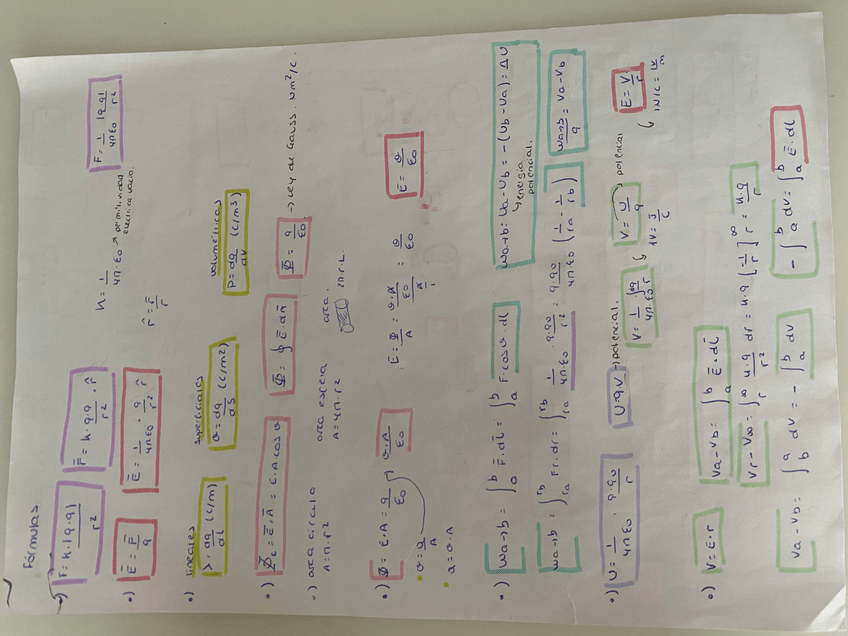 Fórmulas
•) F = k·|q·q| / r² F̄ = k·q·q / r² · r̂ k = 1 / 4π·ε0 → permitividad eléctrica vacío. F = 1 / 4πε0 |q·q| / r²
•) Ē = F̄ / q Ē = 1 / 4πε0 · q / r² · r̂ r̂ = r̄ / r
•) lineales superficiales volumétricas
λ = dq / dl (C/m) σ = dq / ds (C/m²) ρ = dq / dv (C/m³)
•) Φε = Ē·Ā = E·A cos θ Φ = ∮ Ē·dā Φ = q / ε0 → Ley de Gauss. Nm²/C.
•) area circulo area esfera area.
A = π·r² A = 4π·r² 2π·r·L
•) Φ = E·A = q / ε0 σ·A / ε0 Ē = Φ / A = σ·A / ε0 / A = σ / ε0 Ē = σ / ε0
• σ = q / A
• q = σ·A
•) Wa→b = ∫ab F̄·dl̄ = ∫ab F·cosθ dl Wa→b = Ua - Ub = -(Ub - Ua) = ΔU
energía potencial.
Wa→b = ∫ra rb Fr·dr = ∫ra rb 1 / 4πε0 q·q0 / r² = q·q0 / 4π·ε0 (1 / ra - 1 / rb) Wa→b / q = Va - Vb
•) U = 1 / 4πε0 · q·q0 / r U = q·V → potencial. V = 1 / 4π·ε0 ∫ dq / r V = U / q → potencial Ē = V / r
1V = J / C 1N/C = 1V / m
•) V = E·r Va - Vb = ∫ab Ē·dl̄
Vr - V∞ = ∫r∞ k·q / r² dr = k·q [1 / r] r∞ = k·q / r
Va - Vb = ∫ba dv = - ∫ab dv - ∫ab dv = ∫ab Ē·dl